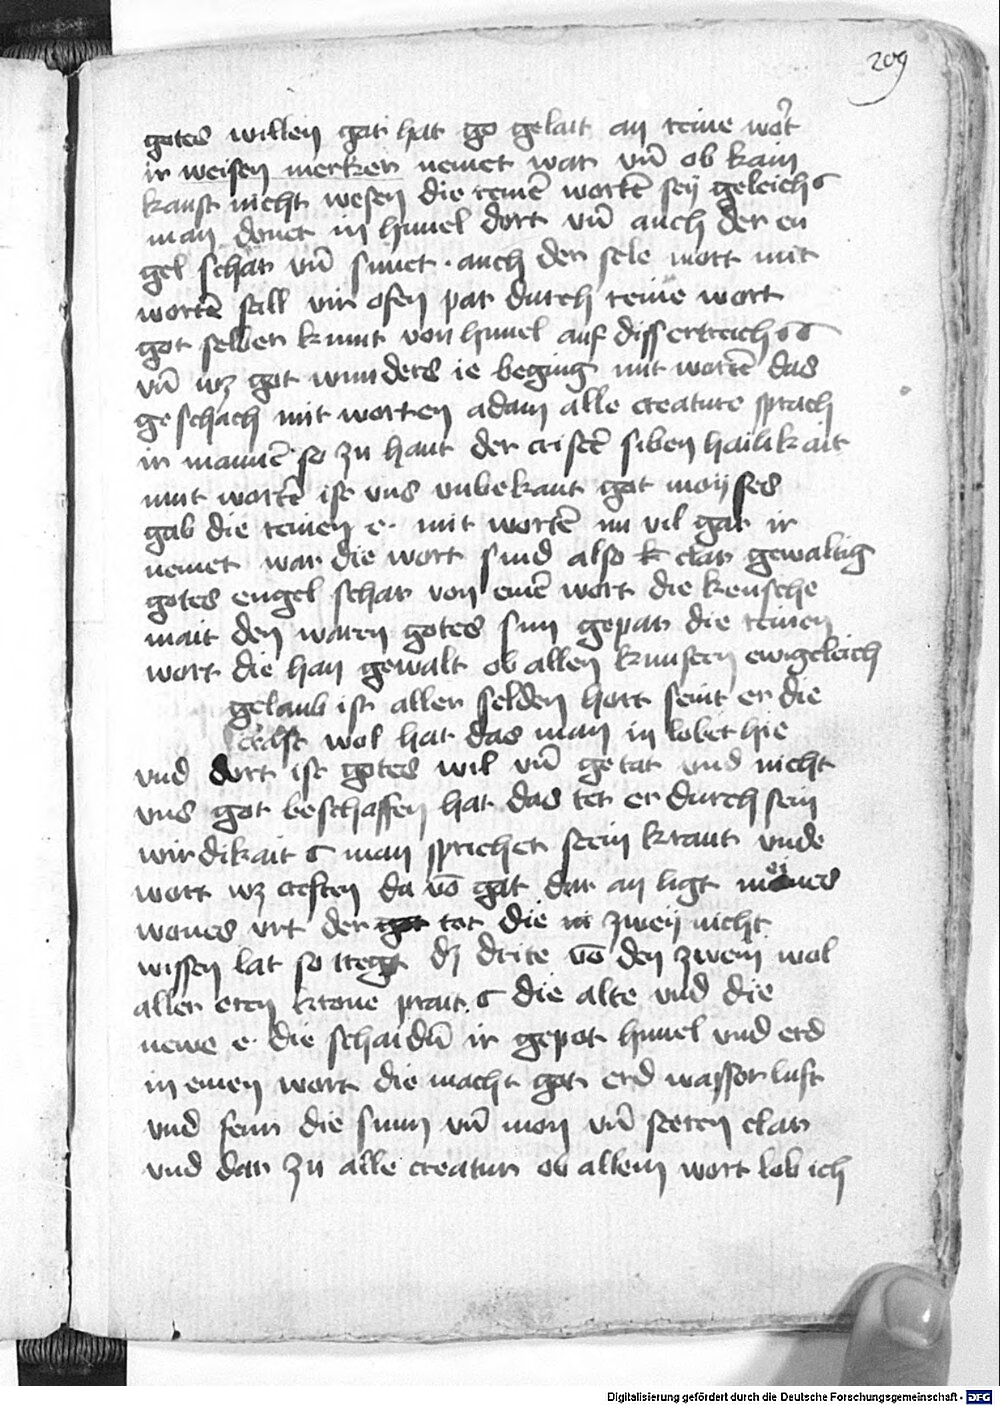 209
gotes willen gar hat go gelait an reine wort
ir weisen merker nemet war vnd ob kain
kunst nicht wesen die reinē wortē sey geleich
man donet in himel dort vn̄ auch der en
gel schar vn̄ sunet · auch der sele mort mit
wortē sell vir ofen par durch reine wort
got selber kumt von himel auf diss ertreich
vn̄ wz got wunders ie beging mit wortē das
geschach mit worten adam alle creature sprach
ir namē so zu hant der cristē siben hailikait
mit wortē ist vns vnbekant got moyses
gab die reinen e · mit wortē nu vil gar ir
nemet war die wort sind also k clar gewaltig
gotes engel schar von einē wort die keusche
mait den waren gotes sun gepar die reinen
wort die han gewalt ob allen kunsten ewigeleich
gelaub ist aller selden hort seint er die
wol hat das man in lobet hie
vnd dort ist gotes wil vn̄ getat vnd nicht
vns got beschaffen hat das tet er durch sein
wirdikait man sprichet stein kraut vnde
wort wz creften da vō got dar an ligt meines
wones vrt der got tet die in zweij nicht
wissen lat so treg dz drite vō den zwein wol
aller eren krone prait · die alte vnd die
newe e · die schaidē ir gepot himel vnd erd
in einen wort die macht got erd wasser luft
vnd feur die sunn vn̄ mon vn̄ steren clar
vnd dar zu alle creatur ob allem wort lob ich
Digitalisierung gefördert durch die Deutsche Forschungsgemeinschaft - DFG